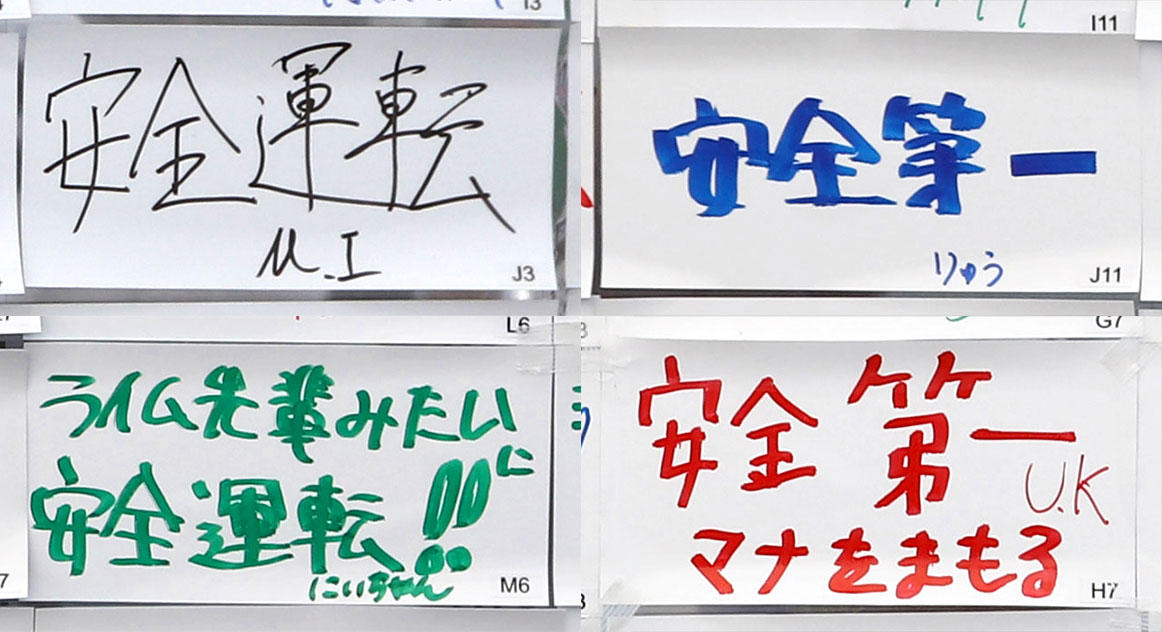 I3
安全運転
M.I
J3
I11
安全第一
りゅう
J11
L6
ライム先輩みたいに
安全運転!!
にいちゃん
M6
G7
安全第一
U.K
マナをまもる
H7